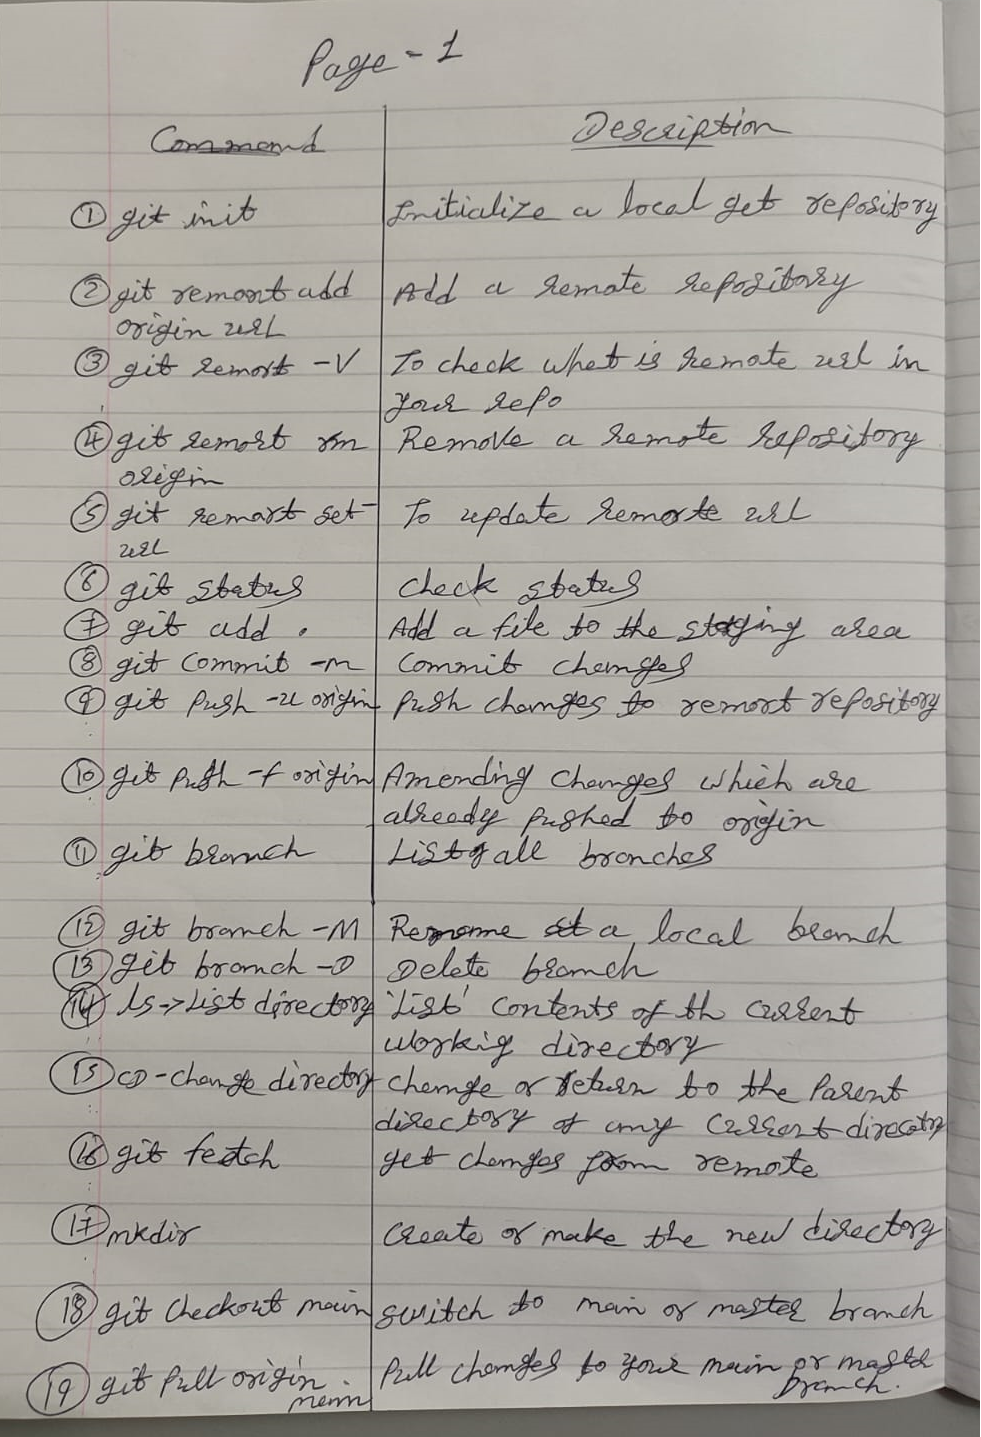 Page - 1
Command
Description
① git init
Initialize a local get repository
② git remort add
origin url
Add a remote repository
③ git remort -V
To check what is remote url in
your repo
④ git remort rm
origin
Remove a remote repository
⑤ git remort set-
url
To update remote url
⑥ git status
check status
⑦ git add .
Add a file to the staging area
⑧ git commit -m
commit changes
⑨ git push -u origin
push changes to remort repository
⑩ git push -f origin
Amending changes which are
already pushed to origin
⑪ git branch
List of all branches
⑫ git branch -M
Rename a local branch
⑬ git branch -D
Delete branch
⑭ ls -> List directory
'List' contents of th current
workig directory
⑮ CD - change directory
change or return to the parent
directory of any current direcotry
⑯ git fetch
get changes from remote
⑰ mkdir
create or make the new directory
⑱ git checkout main
switch to main or master branch
⑲ git pull origin
main
Pull changes to your main or master
branch.